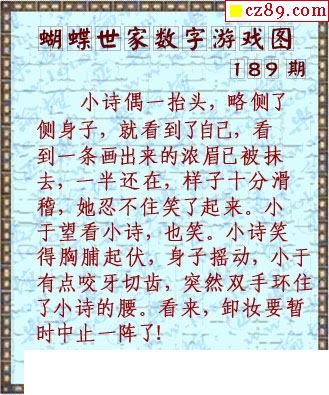 cz89.com
蝴蝶世家数字游戏图
189期
小诗偶一抬头，略侧了
侧身子，就看到了自己，看
到一条画出来的浓眉已被抹
去，一半还在，样子十分滑
稽，她忍不住笑了起来。小
于望看小诗，也笑。小诗笑
得胸脯起伏，身子摇动，小于
有点咬牙切齿，突然双手环住
了小诗的腰。看来，卸妆要暂
时中止一阵了!